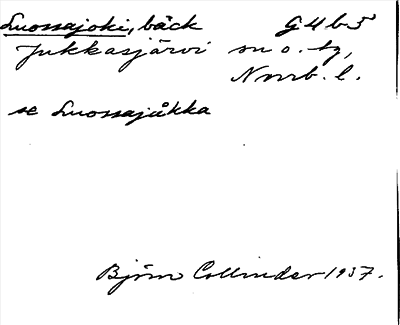 Luossajoki, bäck G4b5
Jukkasjärvi sn o. tg,
Norrb. l.
se Luossajåkka
Björn Collinder 1937.